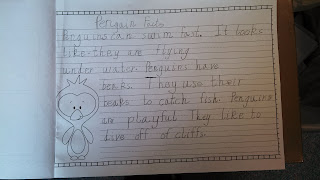 Penguin Facts
Penguins can swim fast. It looks
like they are flying
under water. Penguins have
beaks. They use their
beaks to catch fish. Penguins
are playful They like to
dive off of cliffs.